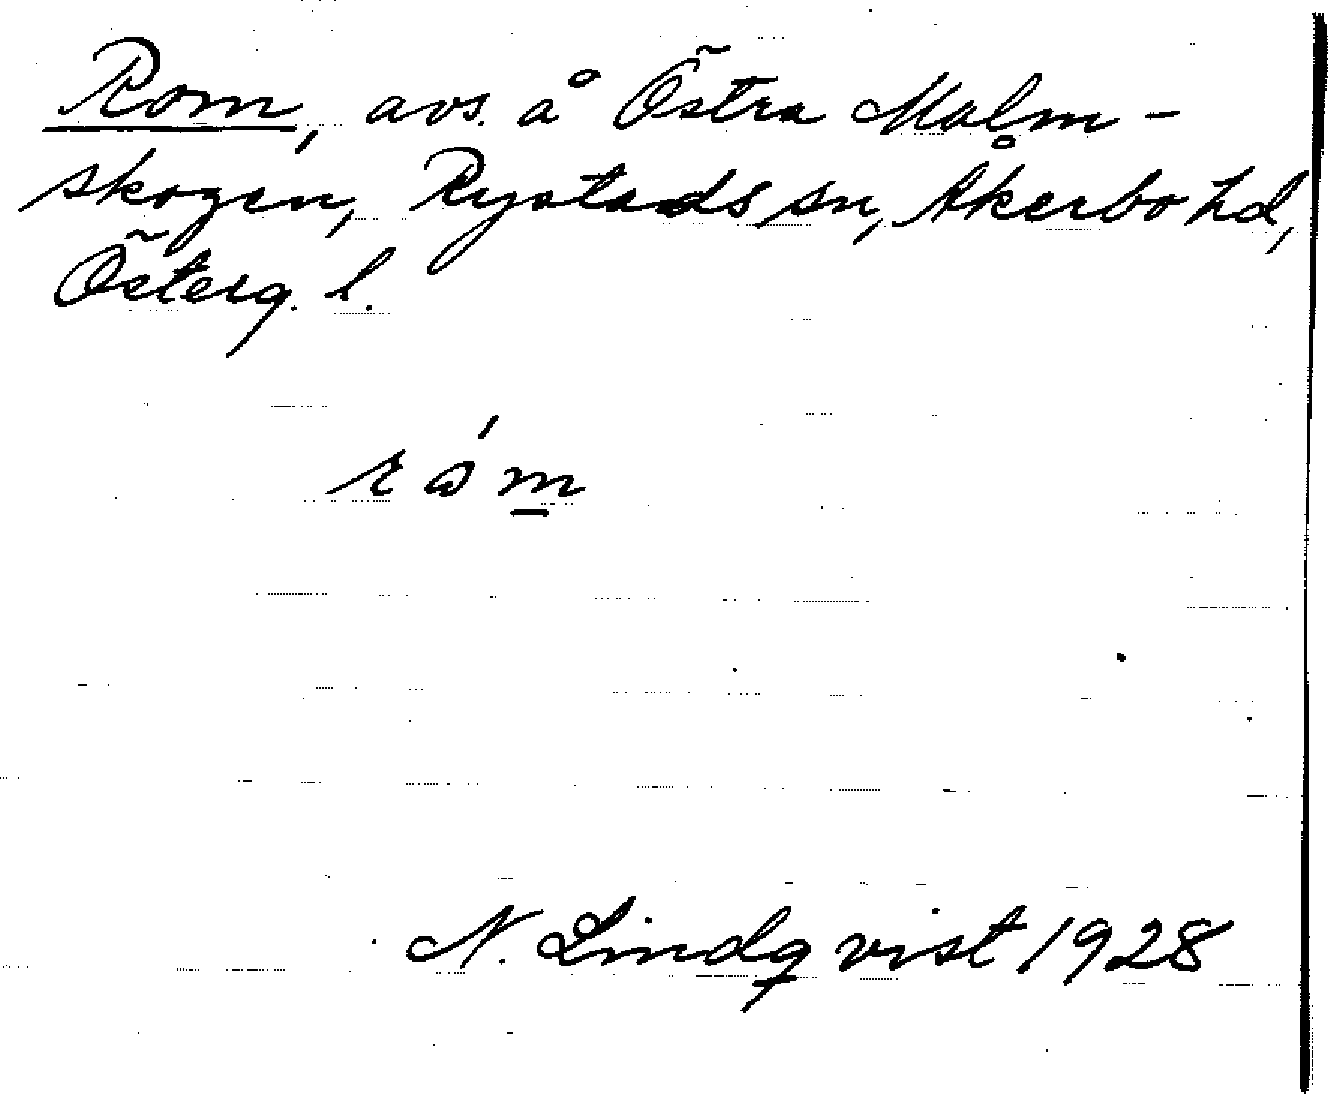 Rom, avs. å Östra Malm-
skogen, Rystads sn, Åkerbo hd,
Österg. l.
råm̲
N. Lindqvist 1928